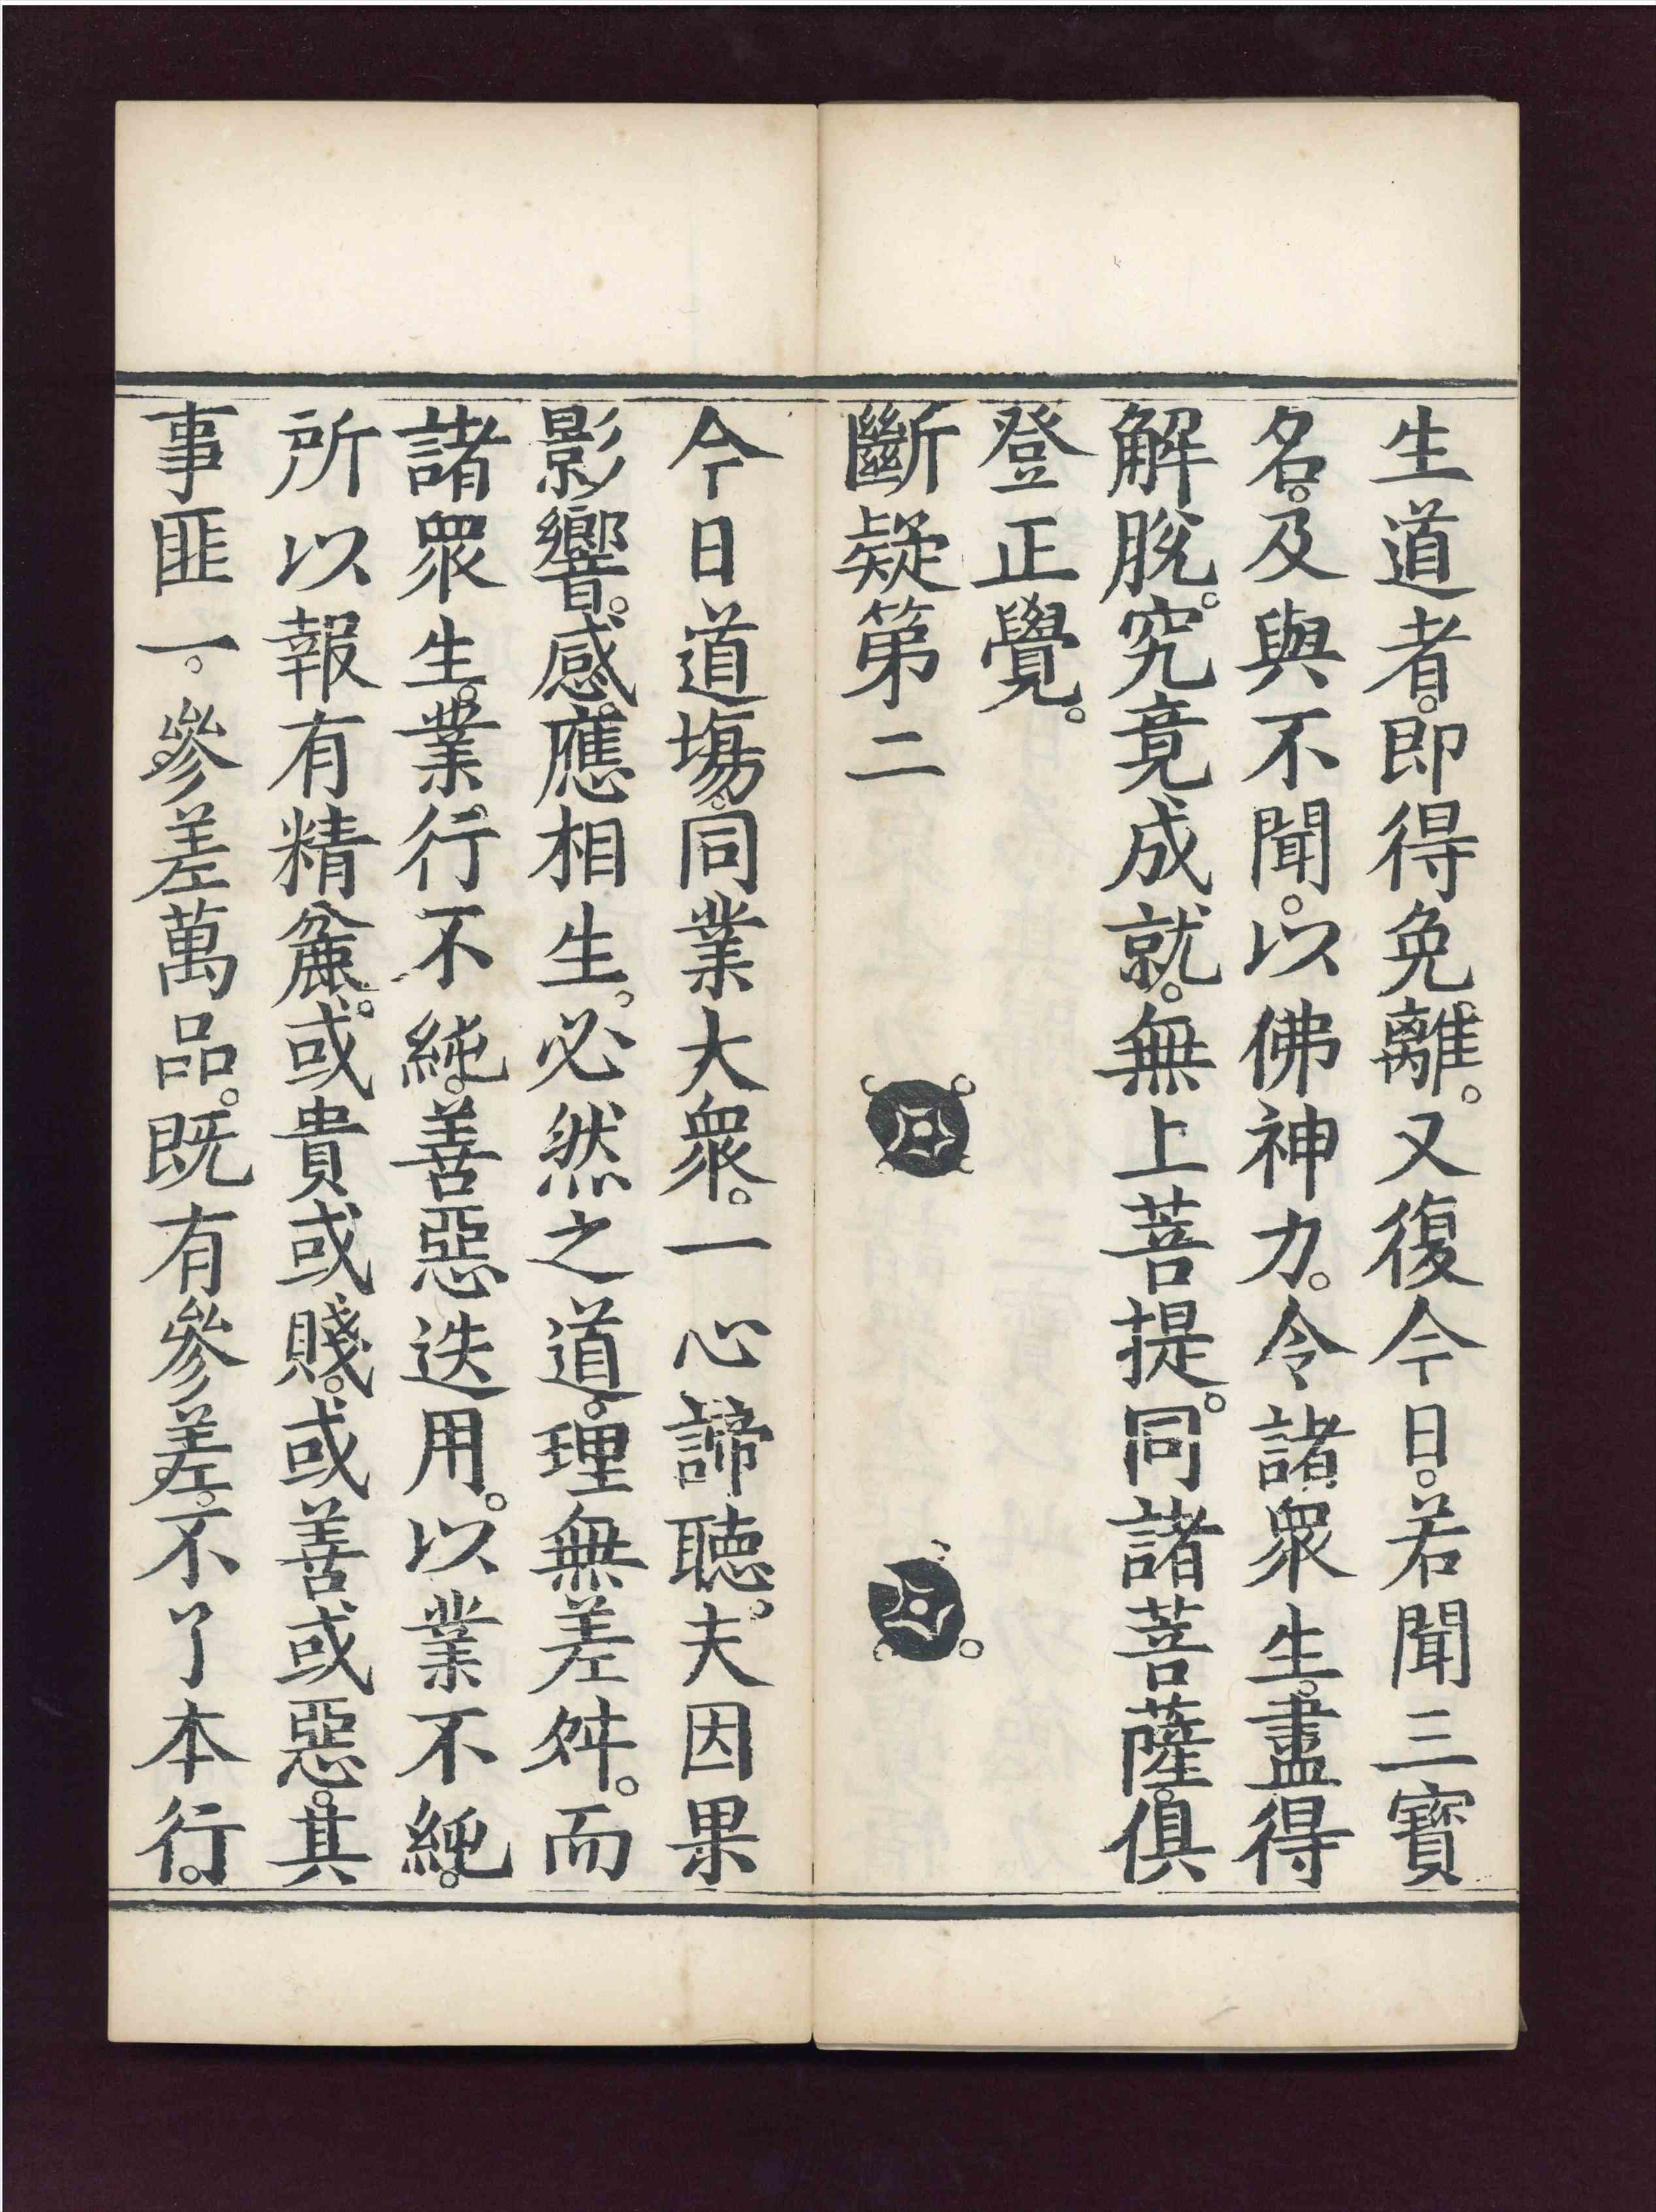 生道者。即得免離。又復今日。若聞三寶
名。及與不聞。以佛神力。令諸衆生。盡得
解脫。究竟成就。無上菩提。同諸菩薩。俱
登正覺。
斷疑第二
今日道場。同業大衆。一心諦聽。夫因果
影響。感應相生。必然之道。理無差舛。而
諸衆生。業行不純。善惡迭用。以業不純。
所以報有精麁。或貴或賤。或善或惡。其
事匪一。參差萬品。既有參差。不了本行。